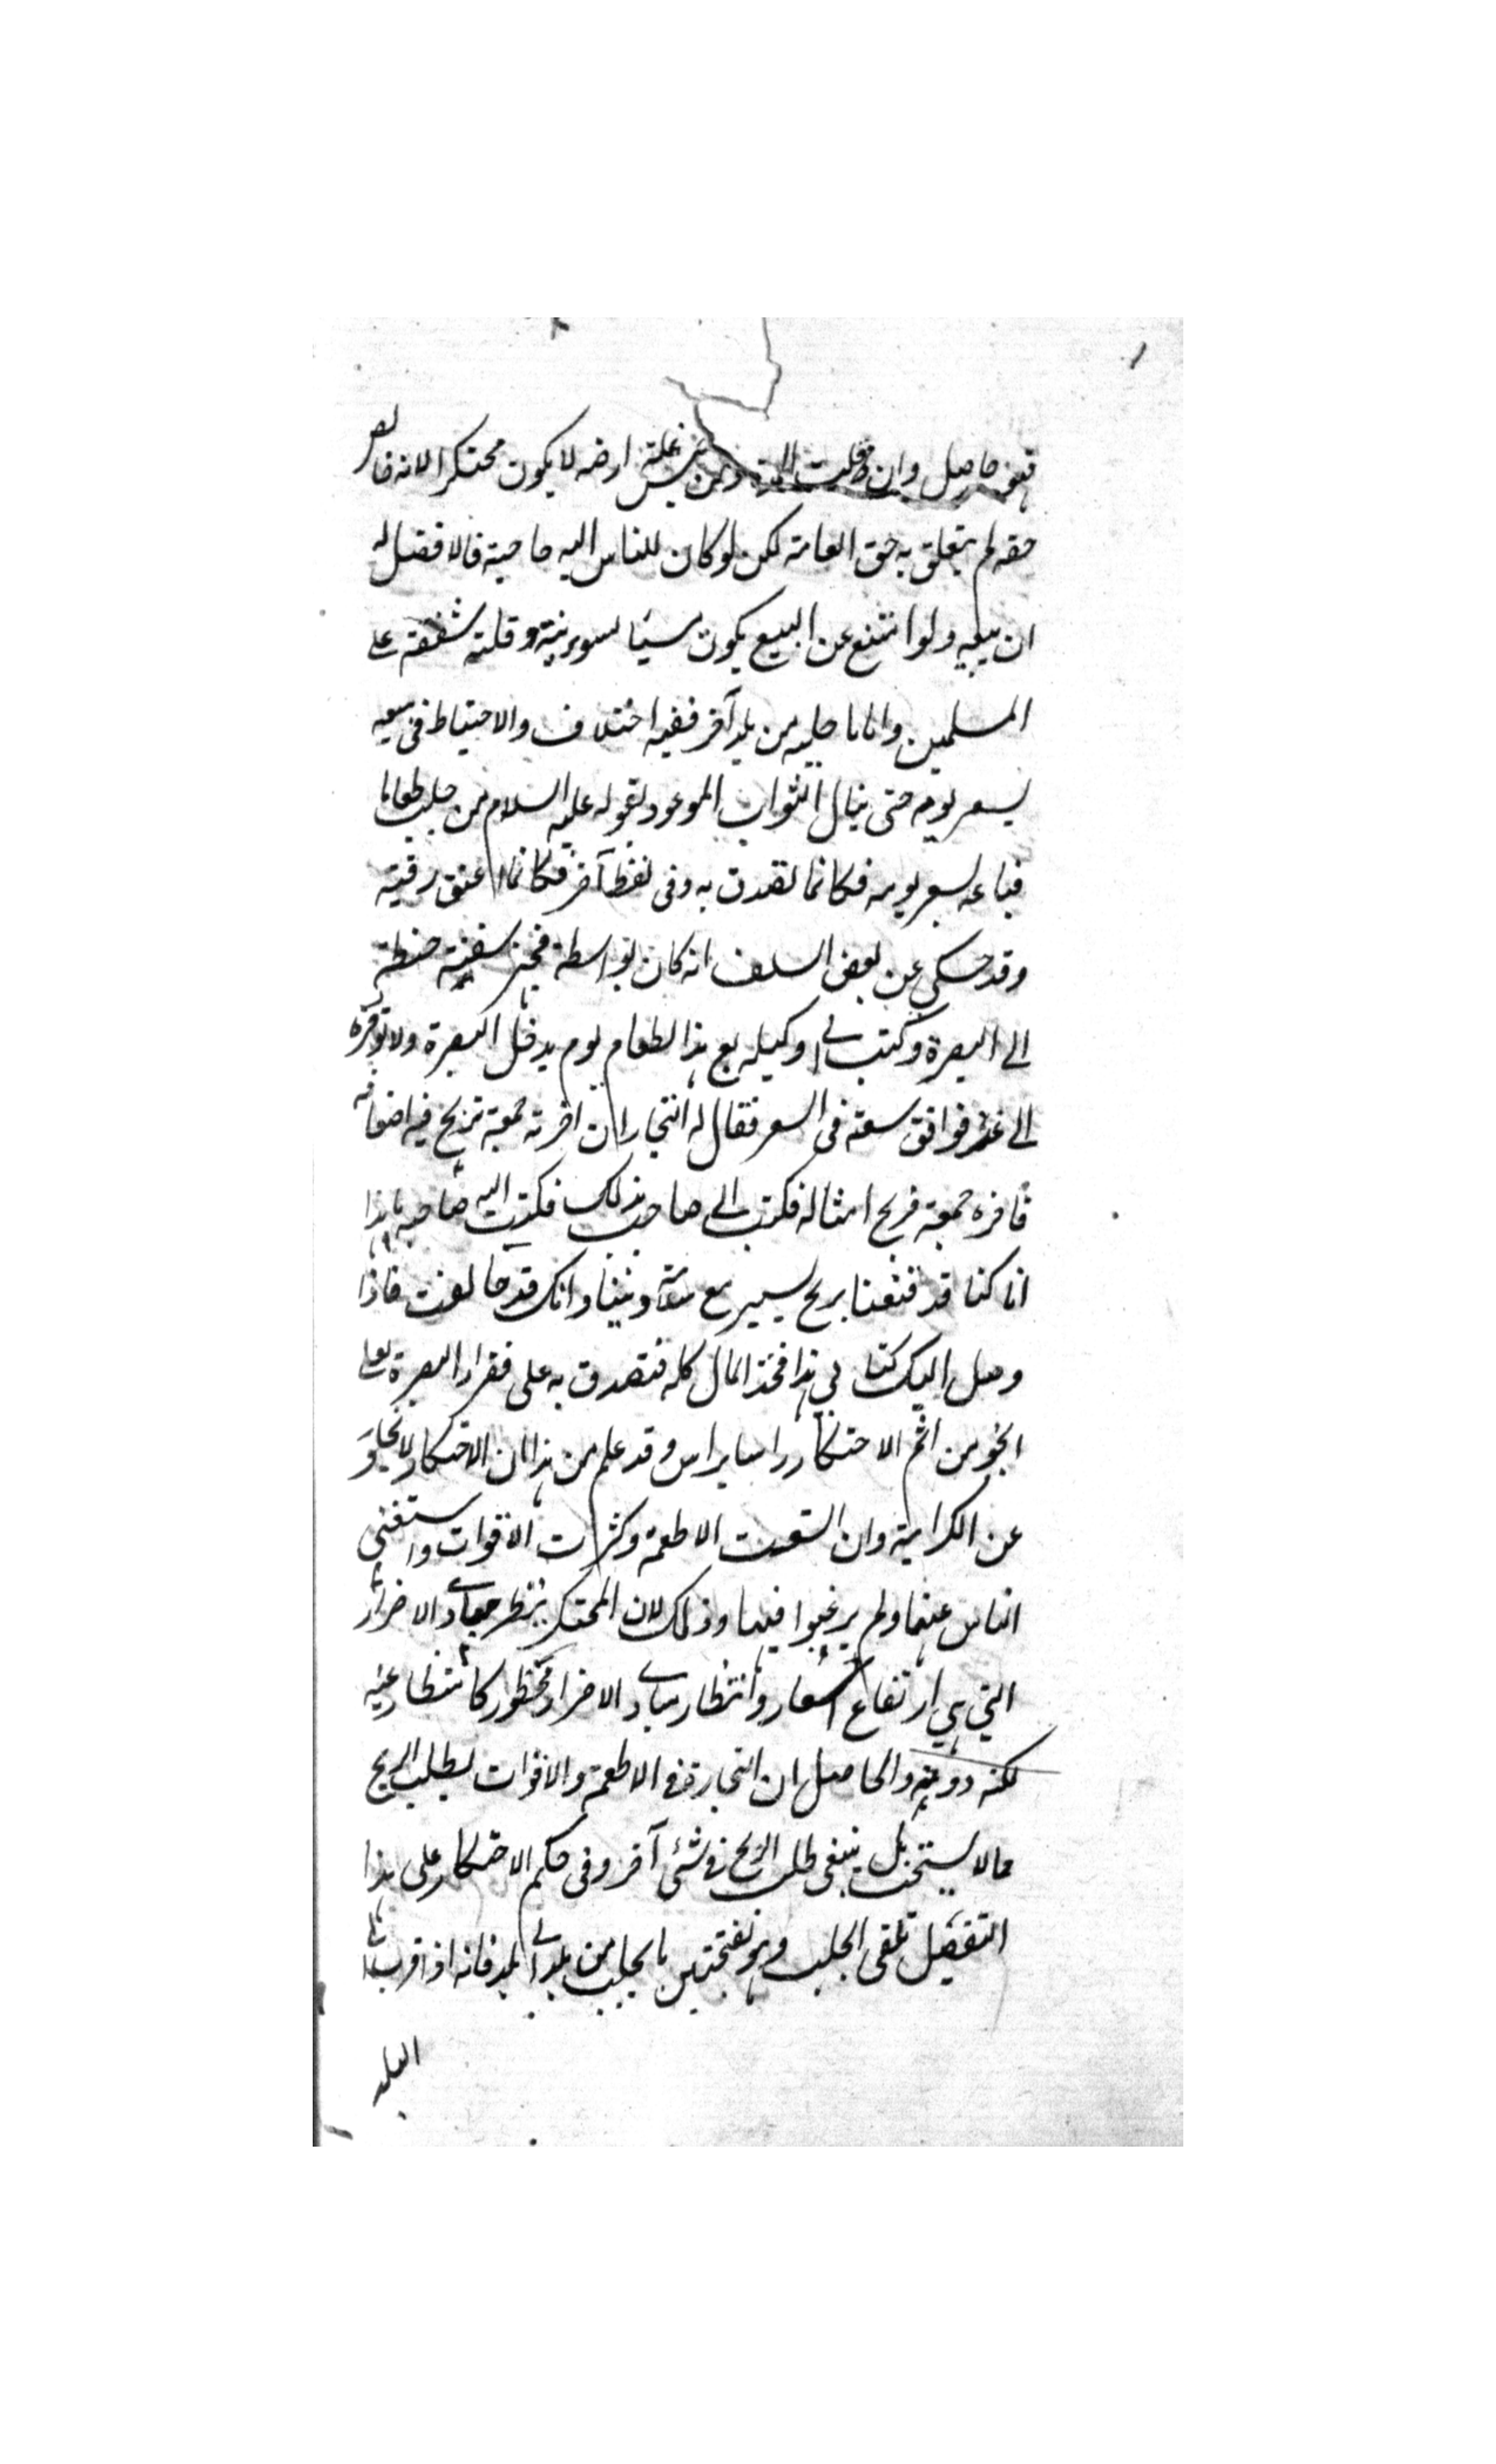 فهو حاصل وان قلت المدة ومن حبس غلة ارضه لا يكون محتكرا لانه خالص
حقه لم يتعلق به حق العامة لكن لو كان للناس اليه حاجة فالافضل له
ان يبيعه ولو امتنع عن البيع يكون مسيئا لسوء نيته وقلة شفقته على
المسلمين واما ما جلبه من بلد آخر ففيه اختلاف والاحتياط في بيعه
بسعر يومه حتى ينال الثواب الموعود لقوله عليه السلام من جلب طعاما
فباعه بسعر يومه فكانما تصدق به وفي لفظ آخر فكانما اعتق رقبة
وقد حكي عن بعض السلف انه كان بواسطة فجهز سفينة حنطة
الى البصرة وكتب الى وكيله بع هذا الطعام يوم يدخل البصرة ولا تؤخره
الى غد فوافق سعة في السعر فقال له التجار ان اخرته جمعة تربح فيه اضعافه
فاخره جمعة فربح امثاله فكتب الى صاحبه بذلك فكتب اليه صاحبه يا هذا
انا كنا قد قنعنا بربح يسير مع سلامة ديننا وانك قد خالفت فاذا
وصل اليك كتابي هذا فخذ المال كله فتصدق به على فقراء البصرة لعلي
انجو من اثم الاحتكار راسا براس وقد علم من هذا ان الاحتكار لا يخلو
عن الكراهية وان اتسعت الاطعمة وكثرت الاقوات واستغنى
الناس عنها ولم يرغبوا فيها وذلك لان المحتكر ينتظر مبادى الاضرار
التي هي ارتفاع الاسعار وانتظار مبادى الاضرار محظور كانتظار عينه
لكنه دونه والحاصل ان التجارة في الاطعمة والاقوات لطلب الربح
مما لا يستحب بل ينبغي طلب الربح في شئ آخر وفي حكم الاحتكار على هذا
التفصيل تلقى الجلب وهو بفتحتين ما يجلب من بلد الى بلد فانه اذا قرب
البلد